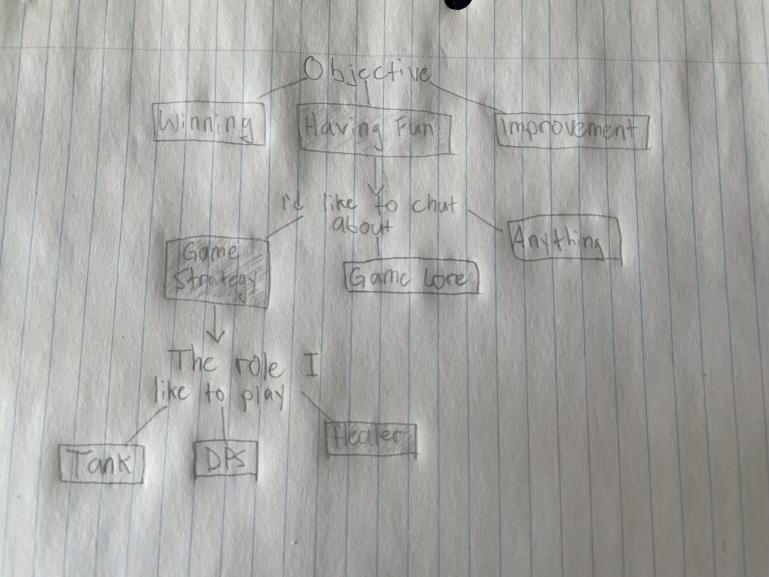 Objective
Winning
Having Fun
Improvement
I'd like to chat
about
Anything
Game
Strategy
Game Lore
The role I
like to play
Tank
DPS
Healer